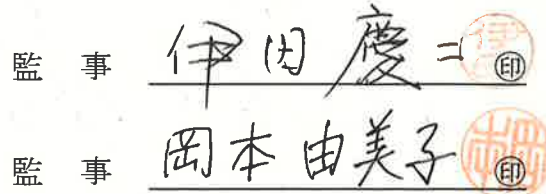 監事 伊田慶二 ㊞
監事 岡本由美子 ㊞